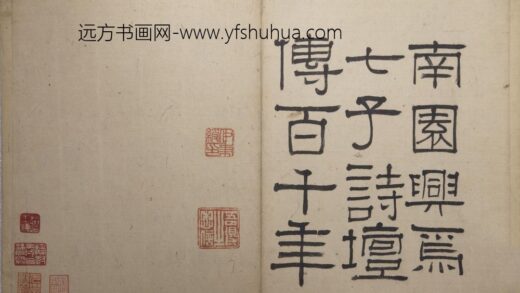 远方书画网-www.yfshuhua.com
南園興焉
七子詩壇
傳百千年